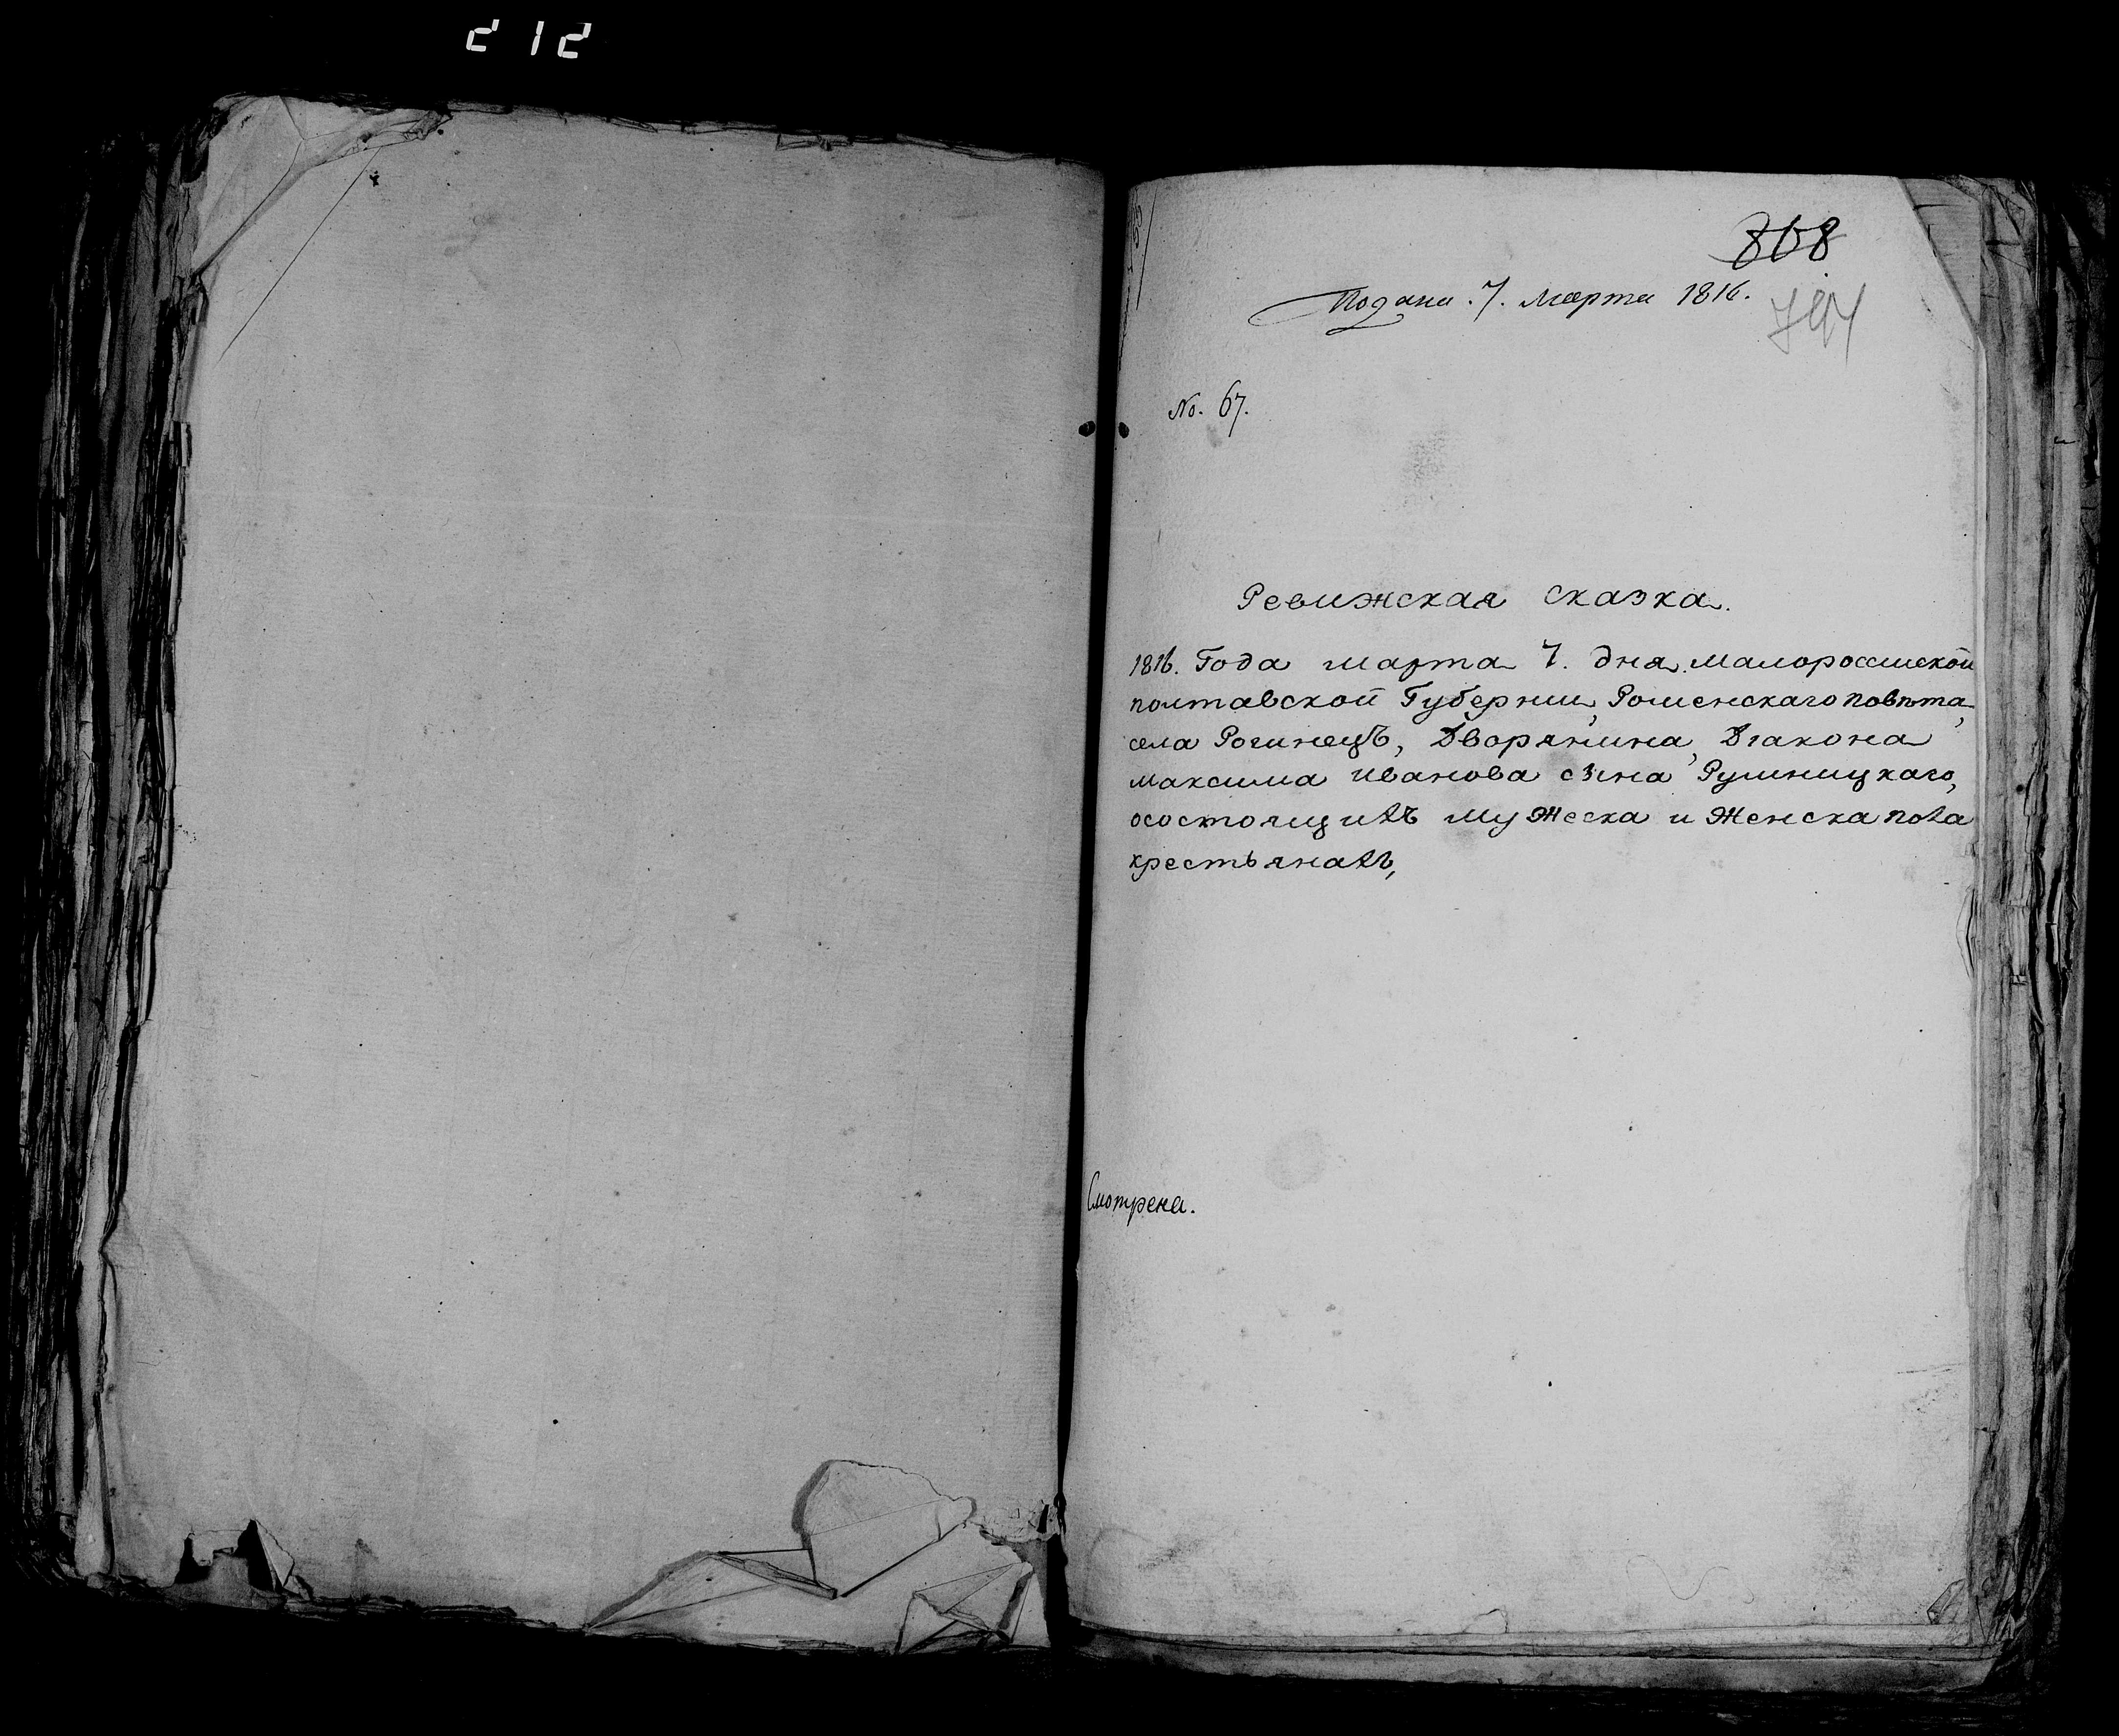 212
868
Подана 7. Марта 1816.
794
No. 67.
Ревижская сказка.
1816. Года марта 7. дня. малороссийской
полтавской Губернии, Роменскаго повѣта,
села Рогинецъ, Дворянина, Диакона
максима иванова сына Рушницкаго,
осостоящихъ мужеска и женска пола
крестьянахъ,
Смотрена.